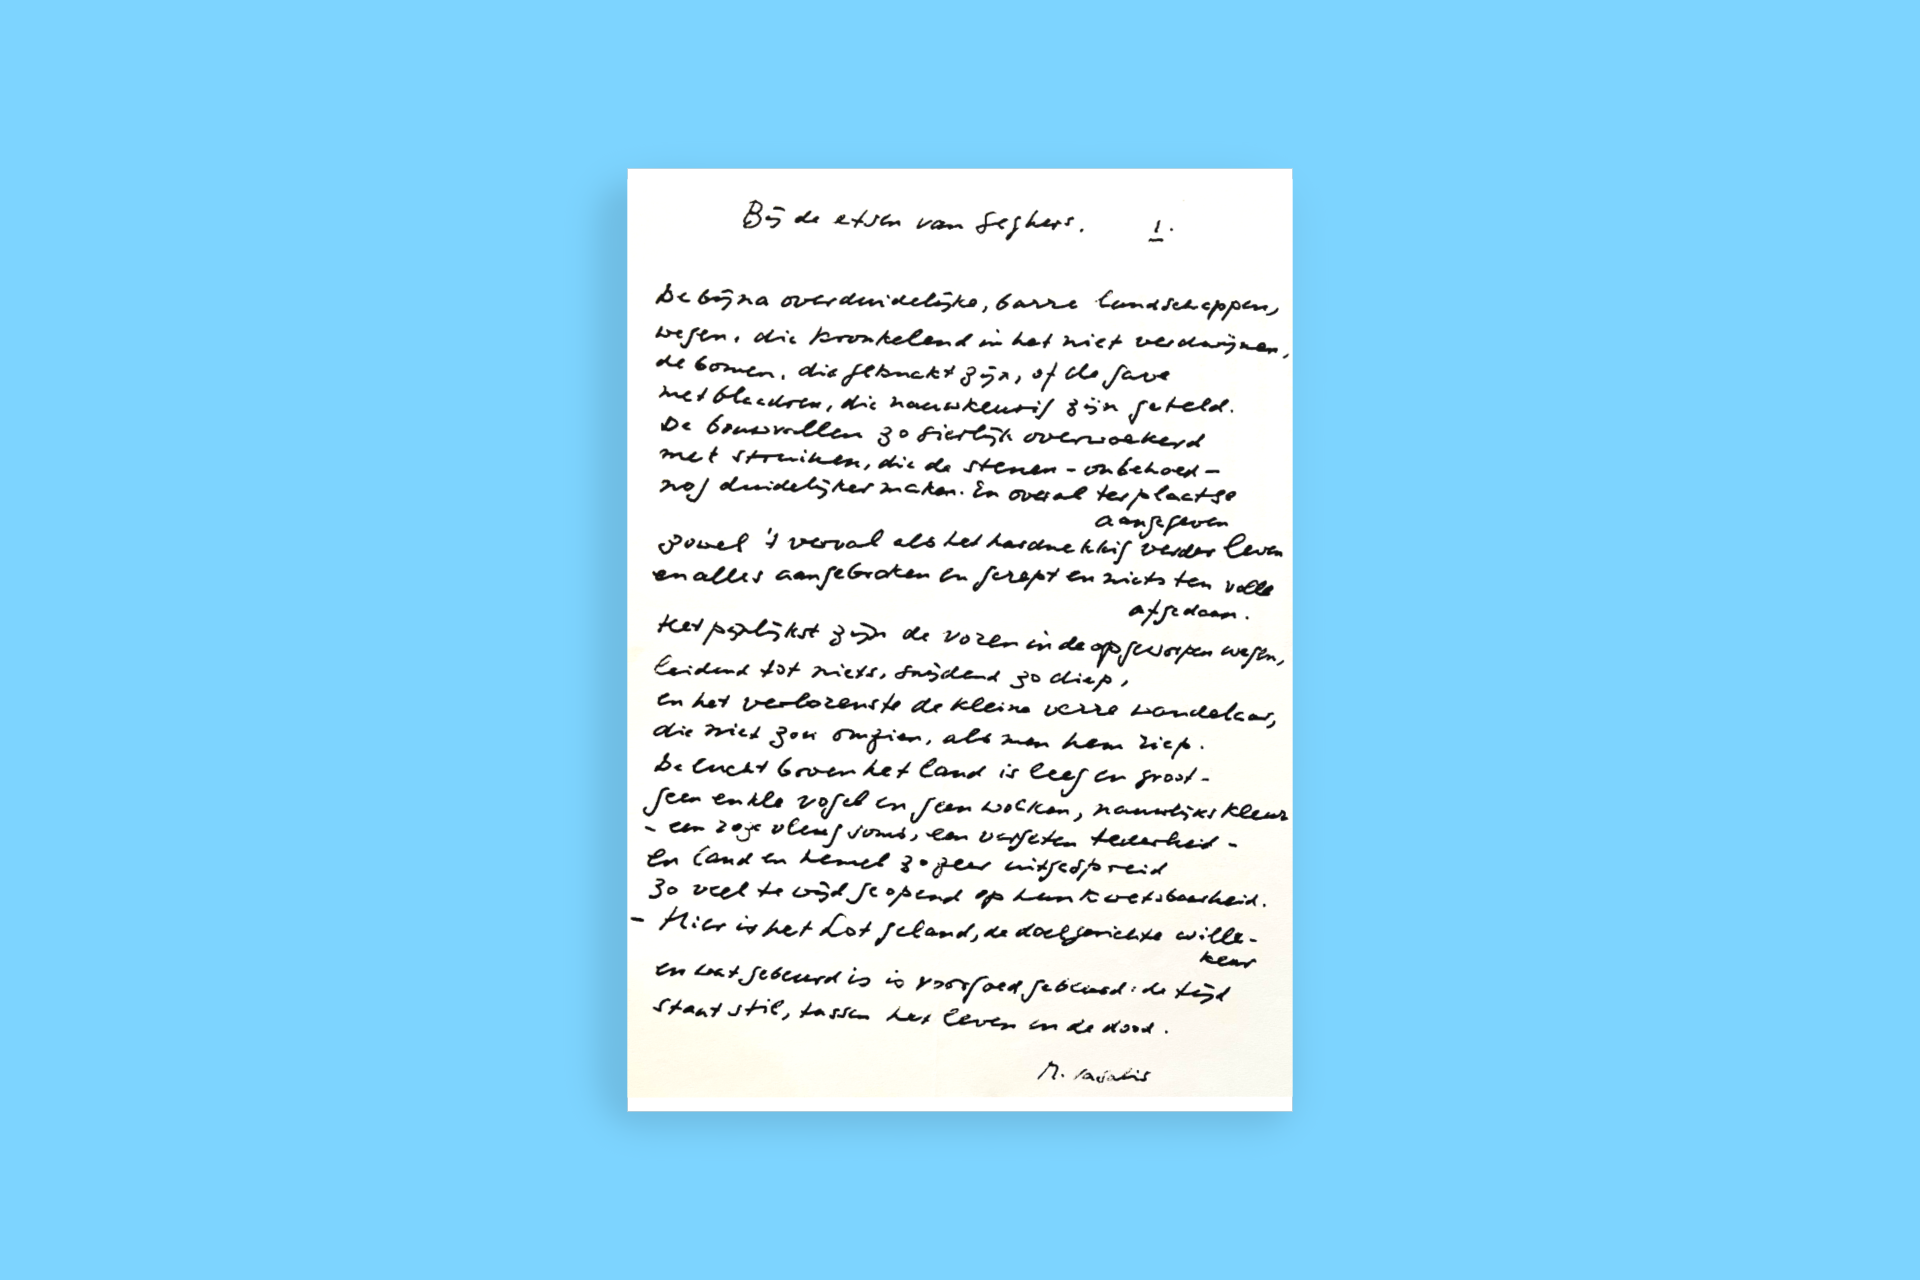 Bij de etsen van Seghers. 1.
De bijna overduidelijke, barre landschappen,
wegen, die kronkelend in het niet verdwijnen,
de bomen, die geknakt zijn, of de gave
met blaadren, die nauwkeurig zijn geteld.
De bouwvallen zo sierlijk overwoekerd
met struiken, die de stenen - onbehoed -
nog duidelijker maken. En overal ter plaatse
aangegeven
zowel 't verval als het hardnekkig verder leven
en alles aangebroken en gerept en niets ten volle
afgedaan.
Het pijnlijkst zijn de voren in de opgeworpen wegen,
leidend tot niets, snijdend zo diep,
en het verlorenste de kleine verre wandelaar,
die niet zou omzien, als men hem riep.
De lucht boven het land is leeg en groot -
geen enkle vogel en geen wolken, nauwlijks kleur
- een roze vleug soms, een vergeten tederheid -
en land en hemel zo zeer uitgespreid
zo veel te wijd geopend op hun kwetsbaarheid.
- Hier is het Lot geland, de doelgerichte wille-
keur
en wat gebeurd is is voorgoed gebeurd: de tijd
staat stil, tussen het leven en de dood.
M. Vasalis